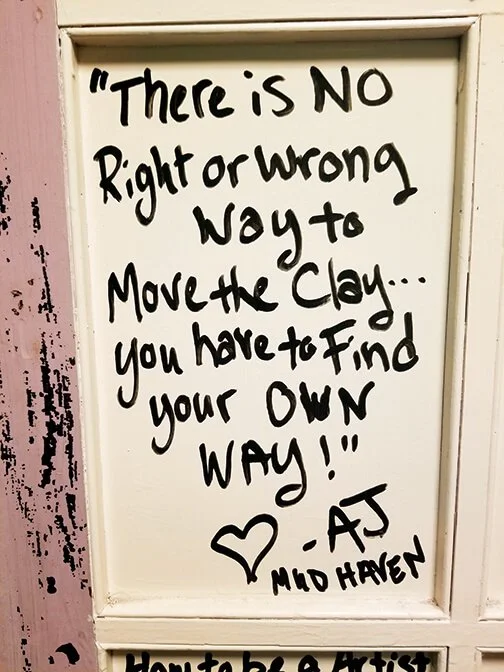 "There is NO
Right or Wrong
Way to
Move the Clay...
you have to Find
your OWN
WAY!"
♡ - AJ
MUD HAVEN
How to be a Artist